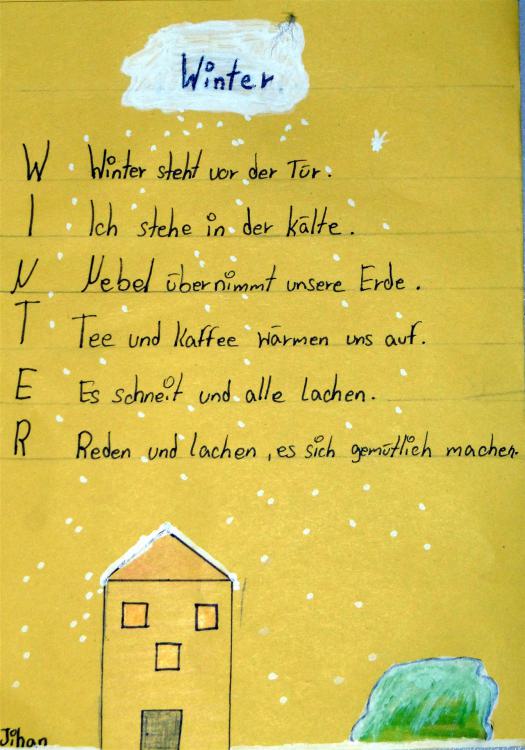 Winter
W Winter steht vor der Tür.
I Ich stehe in der kälte.
N Nebel übernimmt unsere Erde.
T Tee und Kaffee wärmen uns auf.
E Es schneit und alle lachen.
R Reden und lachen, es sich gemütlich machen.
Jihan